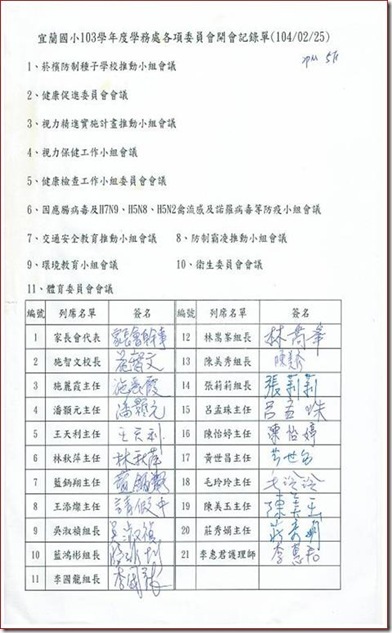 宜蘭國小103學年度學務處各項委員會開會記錄單(104/02/25)
1、菸檳防制種子學校推動小組會議
2、健康促進委員會會議
3、視力精進實施計畫推動小組會議
4、視力保健工作小組會議
5、健康檢查工作小組委員會會議
6、因應腸病毒及H7N9、H5N8、H5N2禽流感及諾羅病毒等防疫小組會議
7、交通安全教育推動小組會議 8、防制霸凌推動小組會議
9、環境教育小組會議 10、衛生委員會會議
11、體育委員會會議
編號 列席名單 簽名 編號 列席名單 簽名
1 家長會代表 12 林嵩峯組長 林嵩峯
2 施智文校長 施智文 13 陳美秀組長 陳美秀
3 施麗霞主任 施麗霞 14 張莉莉組長 張莉莉
4 潘顥元主任 潘顥元 15 呂孟姝主任 呂孟姝
5 王天利主任 王天利 16 陳怡婷主任 陳怡婷
6 林秋萍主任 林秋萍 17 黃世昌主任
7 藍錦翔主任 18 毛玲玲主任 毛玲玲
8 王添燦主任 19 陳美玉主任 陳美玉
9 吳淑禎組長 吳淑禎 20 莊秀娟主任
10 藍鴻彬組長 21 李惠君護理師 李惠君
11 李國龍組長 李國龍